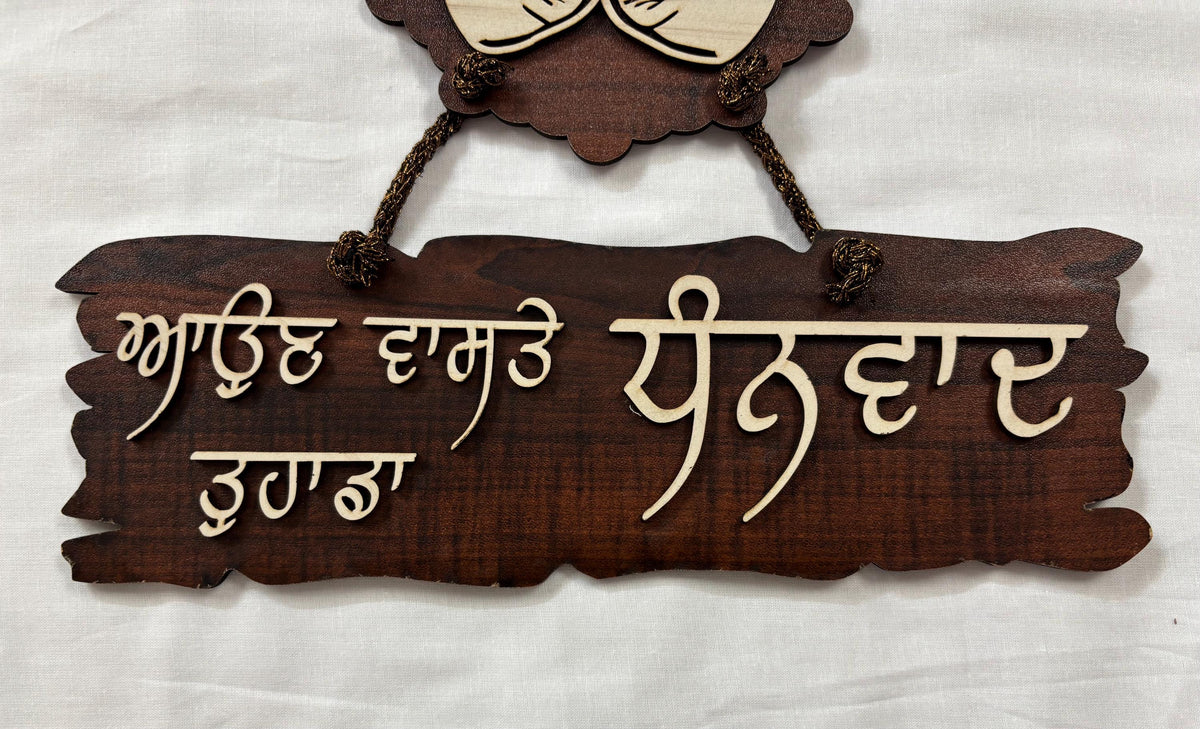 ਆਉਣ ਵਾਸਤੇ ਧੰਨਵਾਦ
ਤੁਹਾਡਾ